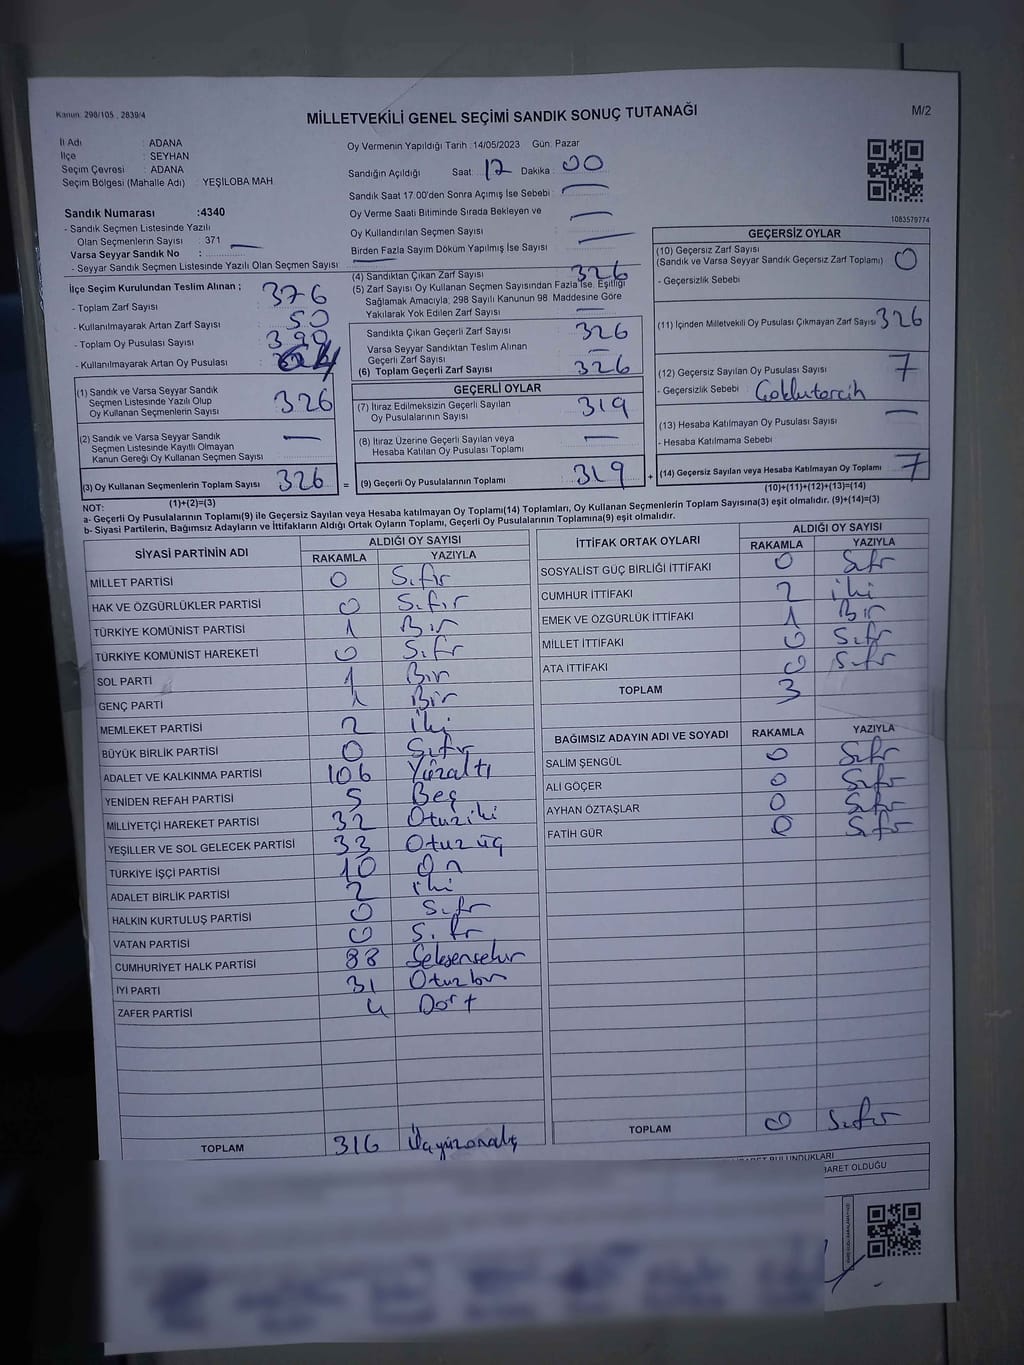 Kanun: 298/105 , 2839/4
MİLLETVEKİLİ GENEL SEÇİMİ SANDIK SONUÇ TUTANAĞI
M/2
İl Adı : ADANA
İlçe : SEYHAN
Seçim Çevresi : ADANA
Seçim Bölgesi (Mahalle Adı) : YEŞİLOBA MAH
Sandık Numarası :4340
- Sandık Seçmen Listesinde Yazılı
Olan Seçmenlerin Sayısı : 371
Varsa Seyyar Sandık No : —
- Seyyar Sandık Seçmen Listesinde Yazılı Olan Seçmen Sayısı: —
Oy Vermenin Yapıldığı Tarih : 14/05/2023 Gün: Pazar
Sandığın Açıldığı Saat: 17 Dakika : 00
Sandık Saat 17:00'den Sonra Açımış İse Sebebi : —
Oy Verme Saati Bitiminde Sırada Bekleyen ve
Oy Kullandırılan Seçmen Sayısı : —
Birden Fazla Sayım Döküm Yapılmış İse Sayısı : —
1083579774
İlçe Seçim Kurulundan Teslim Alınan ;
- Toplam Zarf Sayısı : 376
- Kullanılmayarak Artan Zarf Sayısı : 50
- Toplam Oy Pusulası Sayısı :
- Kullanılmayarak Artan Oy Pusulası :
(1) Sandık ve Varsa Seyyar Sandık
Seçmen Listesinde Yazılı Olup
Oy Kullanan Seçmenlerin Sayısı : 326
(2) Sandık ve Varsa Seyyar Sandık
Seçmen Listesinde Kayıtlı Olmayan
Kanun Gereği Oy Kullanan Seçmen Sayısı : —
(3) Oy Kullanan Seçmenlerin Toplam Sayısı : 326
(1)+(2)=(3)
(4) Sandıktan Çıkan Zarf Sayısı : 326
(5) Zarf Sayısı Oy Kullanan Seçmen Sayısından Fazla İse, Eşitliği
Sağlamak Amacıyla, 298 Sayılı Kanunun 98. Maddesine Göre
Yakılarak Yok Edilen Zarf Sayısı : —
Sandıkta Çıkan Geçerli Zarf Sayısı : 326
Varsa Seyyar Sandıktan Teslim Alınan
Geçerli Zarf Sayısı : —
(6) Toplam Geçerli Zarf Sayısı : 326
GEÇERLİ OYLAR
(7) İtiraz Edilmeksizin Geçerli Sayılan
Oy Pusulalarının Sayısı : 319
(8) İtiraz Üzerine Geçerli Sayılan veya
Hesaba Katılan Oy Pusulası Toplamı : —
= (9) Geçerli Oy Pusulalarının Toplamı : 319 +
GEÇERSİZ OYLAR
(10) Geçersiz Zarf Sayısı
(Sandık ve Varsa Seyyar Sandık Geçersiz Zarf Toplamı) : 0
- Geçersizlik Sebebi :
(11) İçinden Milletvekili Oy Pusulası Çıkmayan Zarf Sayısı : 326
(12) Geçersiz Sayılan Oy Pusulası Sayısı : 7
- Geçersizlik Sebebi :
(13) Hesaba Katılmayan Oy Pusulası Sayısı : —
- Hesaba Katılmama Sebebi :
(14) Geçersiz Sayılan veya Hesaba Katılmayan Oy Toplamı : 7
(10)+(11)+(12)+(13)=(14)
NOT:
a- Geçerli Oy Pusulalarının Toplamı(9) ile Geçersiz Sayılan veya Hesaba Katılmayan Oy Toplamı(14) Toplamları, Oy Kullanan Seçmenlerin Toplam Sayısına(3) eşit olmalıdır. (9)+(14)=(3)
b- Siyasi Partilerin, Bağımsız Adayların ve İttifakların Aldığı Ortak Oyların Toplamı, Geçerli Oy Pusulalarının Toplamına(9) eşit olmalıdır.
SİYASİ PARTİNİN ADI ALDIĞI OY SAYISI
RAKAMLA YAZIYLA
MİLLET PARTİSİ 0 Sıfır
HAK VE ÖZGÜRLÜKLER PARTİSİ 0 Sıfır
TÜRKİYE KOMÜNİST PARTİSİ 1 Bir
TÜRKİYE KOMÜNİST HAREKETİ 0 Sıfır
SOL PARTİ 1 Bir
GENÇ PARTİ 1 Bir
MEMLEKET PARTİSİ 2 İki
BÜYÜK BİRLİK PARTİSİ 0 Sıfır
ADALET VE KALKINMA PARTİSİ 106 Yüzaltı
YENİDEN REFAH PARTİSİ 5 Beş
MİLLİYETÇİ HAREKET PARTİSİ 32 Otuziki
YEŞİLLER VE SOL GELECEK PARTİSİ 33 Otuzüç
TÜRKİYE İŞÇİ PARTİSİ 10 On
ADALET BİRLİK PARTİSİ 2 iki
HALKIN KURTULUŞ PARTİSİ 0 Sıfır
VATAN PARTİSİ 0 Sıfır
CUMHURİYET HALK PARTİSİ 88 Seksensekiz
İYİ PARTİ 31 Otuzbir
ZAFER PARTİSİ 4 Dört
TOPLAM 316 Üçyüzonaltı
İTTİFAK ORTAK OYLARI ALDIĞI OY SAYISI
RAKAMLA YAZIYLA
SOSYALİST GÜÇ BİRLİĞİ İTTİFAKI 0 Sıfır
CUMHUR İTTİFAKI 2 iki
EMEK VE ÖZGÜRLÜK İTTİFAKI 1 Bir
MİLLET İTTİFAKI 0 Sıfır
ATA İTTİFAKI 0 Sıfır
TOPLAM 3
BAĞIMSIZ ADAYIN ADI VE SOYADI RAKAMLA YAZIYLA
SALİM ŞENGÜL 0 Sıfır
ALİ GÖÇER 0 Sıfır
AYHAN ÖZTAŞLAR 0 Sıfır
FATİH GÜR 0 Sıfır
TOPLAM 0 Sıfır
BULUNDUKLARI
BARET OLDUĞU